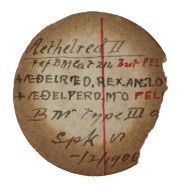 Aethelred II
ref BMCat 214 But PEL
+ÆÐELRED, REX. ANGLO
+ÆÐELPERD. M'O PEL
B M Type III a
Spk
-/2/1900